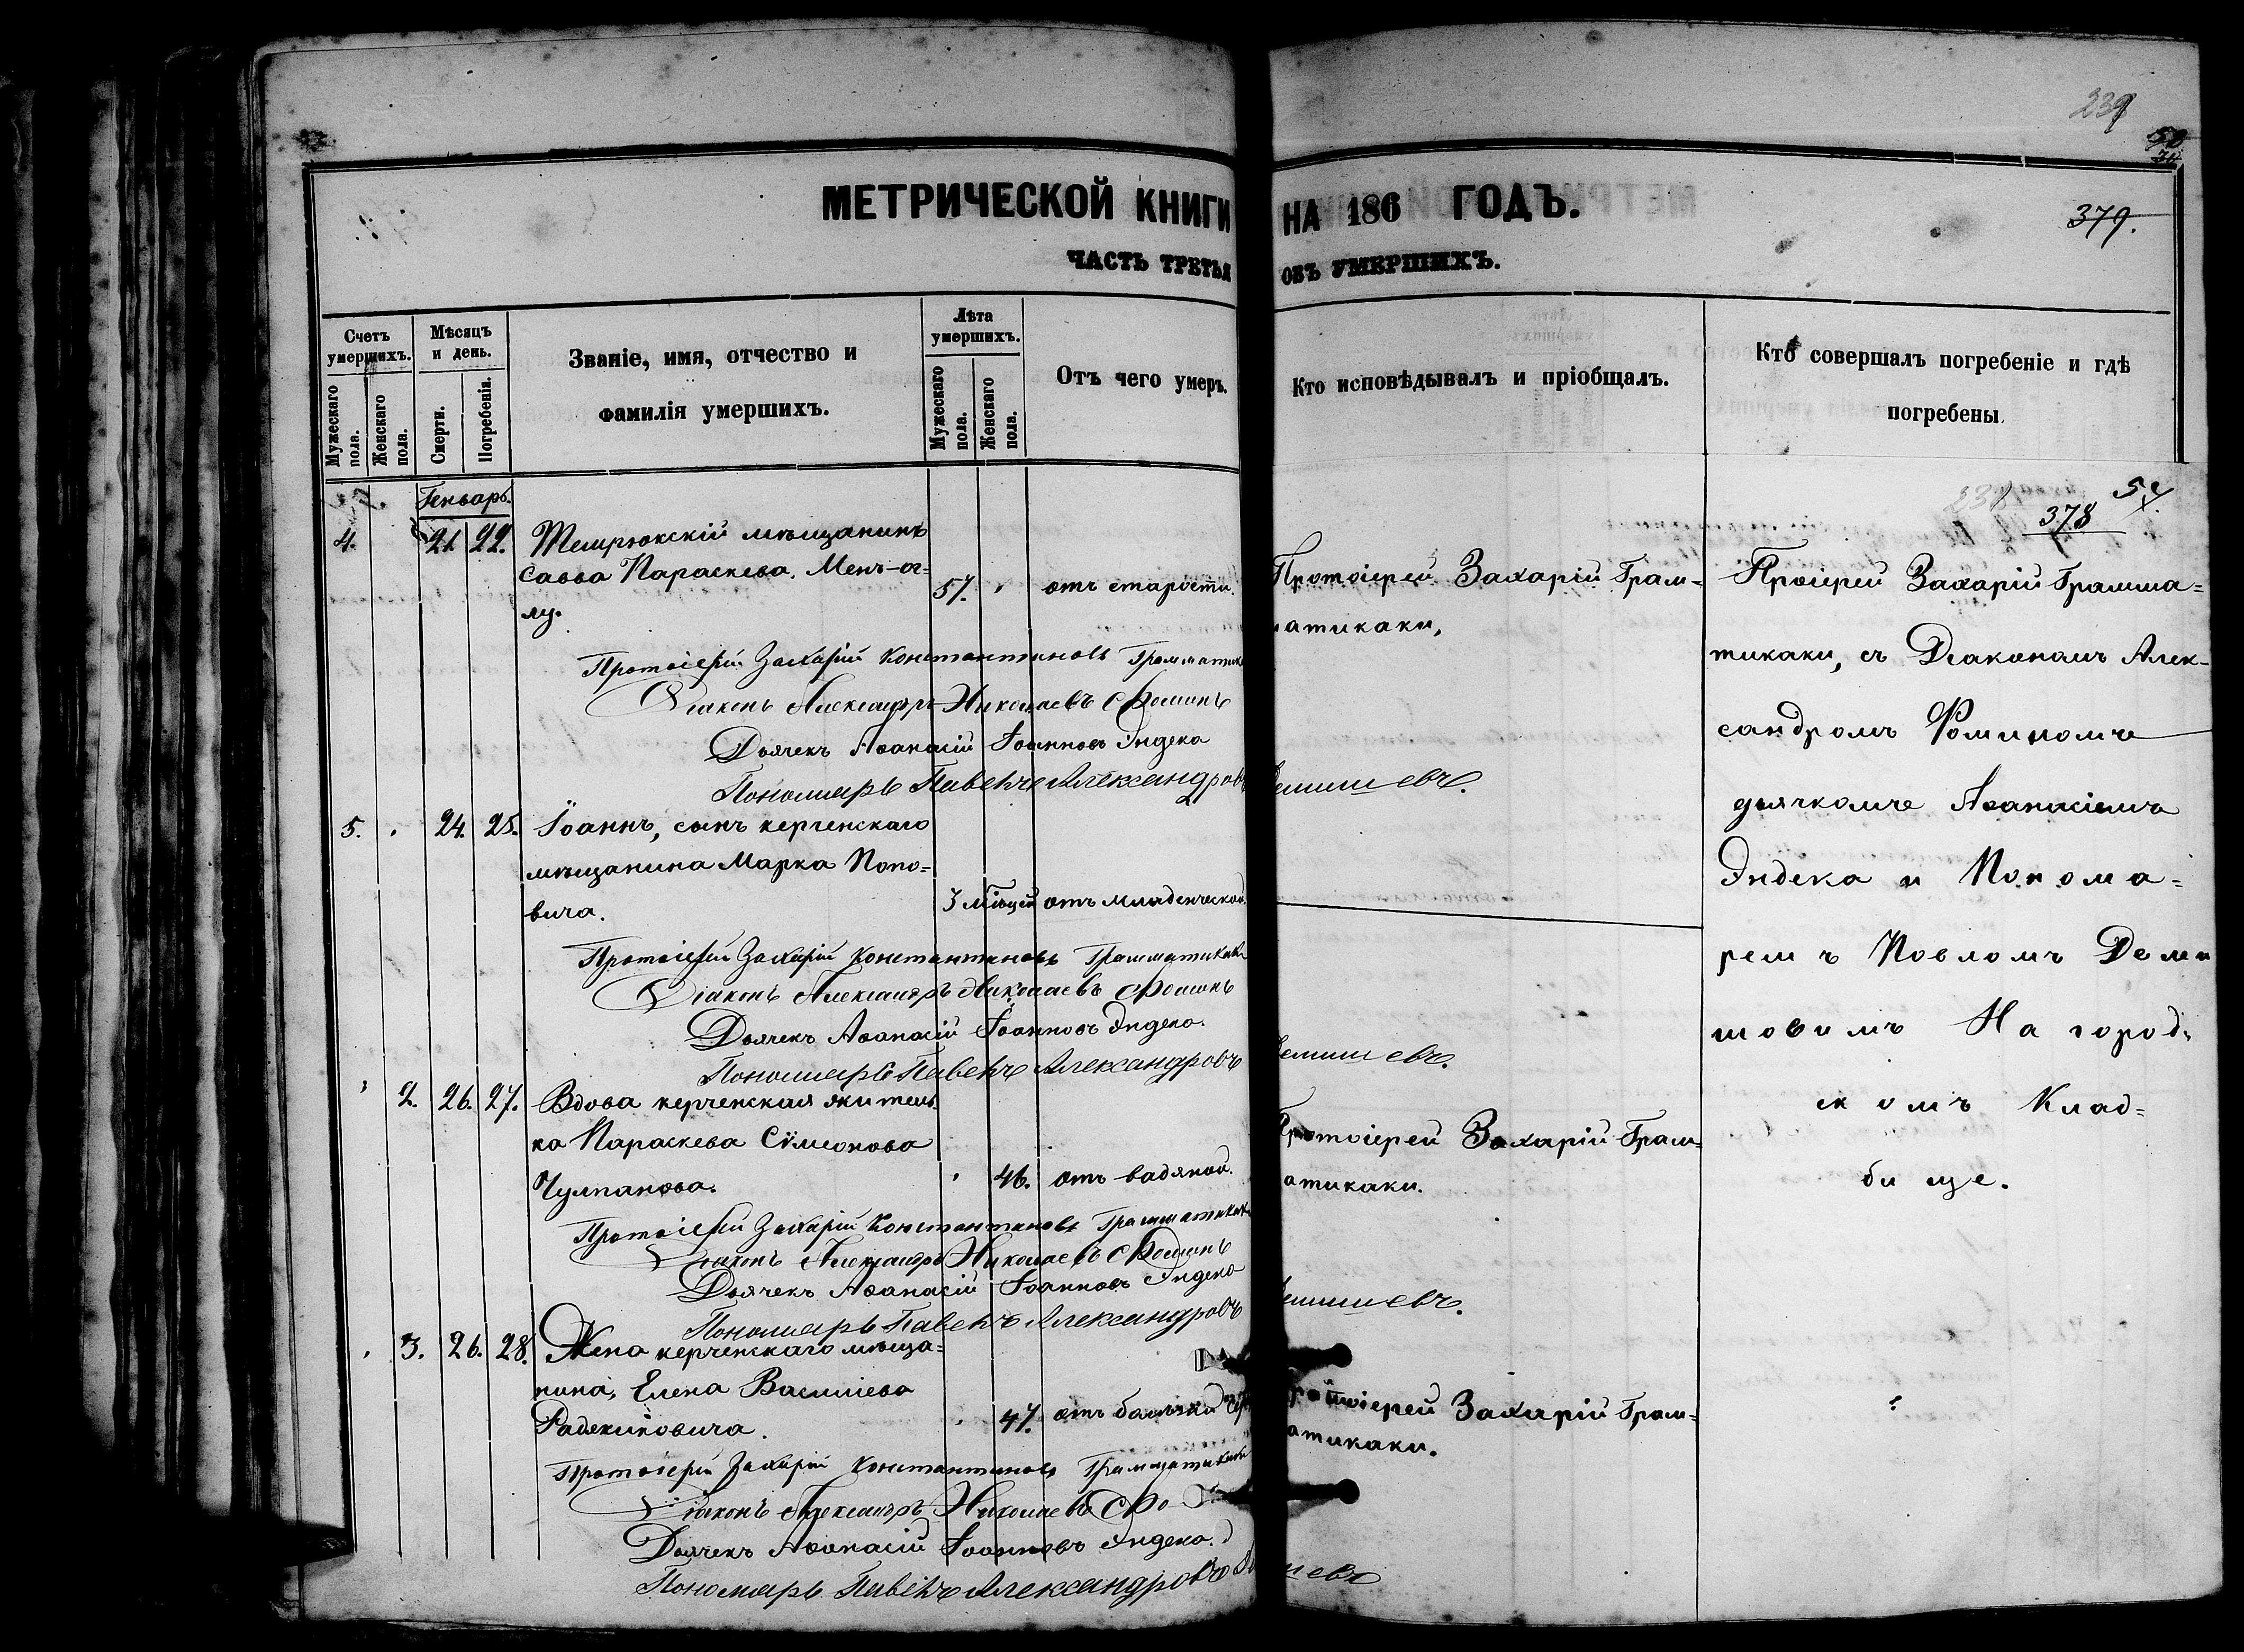 239
50
379.
МЕТРИЧЕСКОЙ КНИГИ НА 186 ГОДЪ.
ЧАСТЬ ТРЕТЬЯ ОБЪ УМЕРШИХЪ.
Счетъ умершихъ.
Мужескаго пола.
Женскаго пола.
Мѣсяцъ и день.
Смерти.
Погребенія.
Званіе, имя, отчество и
фамилія умершихъ.
Лѣта умершихъ.
Мужескаго пола.
Женскаго пола.
Отъ чего умеръ.
Кто исповѣдывалъ и пріобщалъ.
Кто совершалъ погребеніе и гдѣ
погребены.
Генварь.
4. 21 22. Темрюкскій мѣщанинъ
Савва Параскева. Менъ-ог=
лу.
57. отъ старости.
Протоіерей Захарій Грам=
матикаки,
Протоіерей Захарій Константиновъ Грамматик
Діаконъ Александръ Николаевъ Фоминъ
Дьячекъ Аѳанасій Іоанновъ Эндека
Пономарь Павелъ Александровъ Демишевъ.
5. 24. 25. Іоаннъ, сынъ керченскаго
мѣщанина Марка Попо=
вича.
3 мѣсяцей отъ младенческой
Протоіерей Захарій Константиновъ Грамматикаки
Діаконъ Александръ Николаевъ Фоминъ
Дьячекъ Аѳанасій Іоанновъ Эндека.
Пономарь Павелъ Александровъ Демишевъ.
2. 26. 27. Вдова керченская житель
ка Параскева Сѵмеонова
Чулпанова.
46. отъ вадяной.
Протоіерей Захарій Грам=
матикаки.
Протоіерей Захарій Константиновъ Грамматикаки
Діаконъ Александръ Николаевъ Фоминъ
Дьячекъ Аѳанасій Іоанновъ Эндека
Пономарь Павелъ Александровъ Демишевъ.
3. 26. 28. Жена керченскаго мѣща=
нина, Елена Василіева
Радякиновича.
47. отъ
Протоіерей Захарій Грам=
матикаки.
Протоіерей Захарій Константиновъ Грамматикаки
Діаконъ Александръ Николаевъ Фо
Дьячекъ Аѳанасій Іоанновъ Эндека.
Пономарь Павелъ Александровъ Демишевъ
54.
378
Проіерей Захарій Грамма=
тикаки, съ Діакономъ Алек=
сандромъ Фоминомъ
дьячкомъ Аѳанасіемъ
Эндека и Понома=
ремъ Повломъ Деми
шовимъ На город
скомъ Клад=
бище.